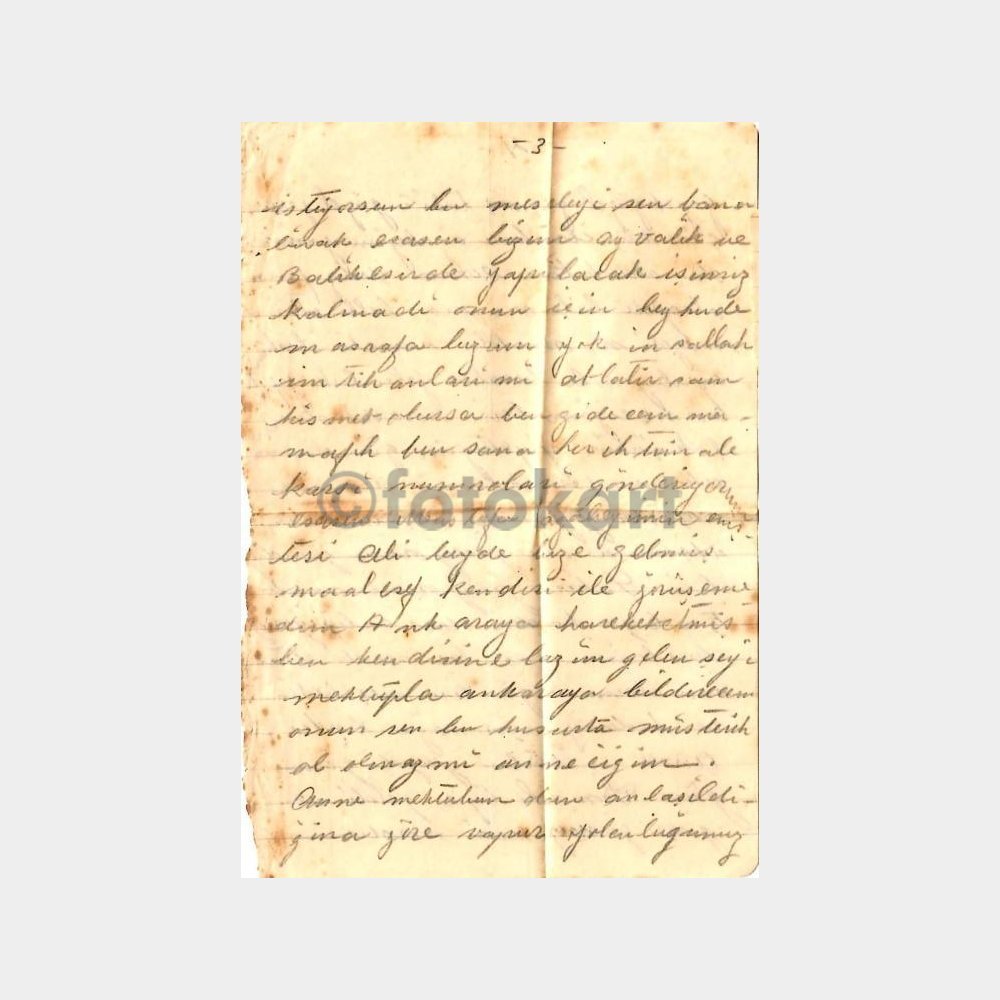 - 3 -
istiyorsan bu meseleyi sen bana
bırak esasen bizim ayvalık ve
Balıkesirde yapılacak işimiz
kalmadı onun için beyhude
masrafa lüzum yok inşallah
imtihanlarımı atlatırsam
kısmet olursa ben gidecem ma-
mafih ben sana her ihtimale
karşı numroları gönderiyorum
esasen eniş
tesi Ali beyde bize gelmiş
maalesef kendisi ile görüşeme
dim Ankaraya hareket etmiş
ben kendisine lazım gelen şeyi
mektupla ankaraya bildirecem
onun sen bu hususta müsterih
ol olmazmı anneciğim.
Anne mektubundan anlaşıldı-
ğına göre vapur yolculuğunuz
©fotokart